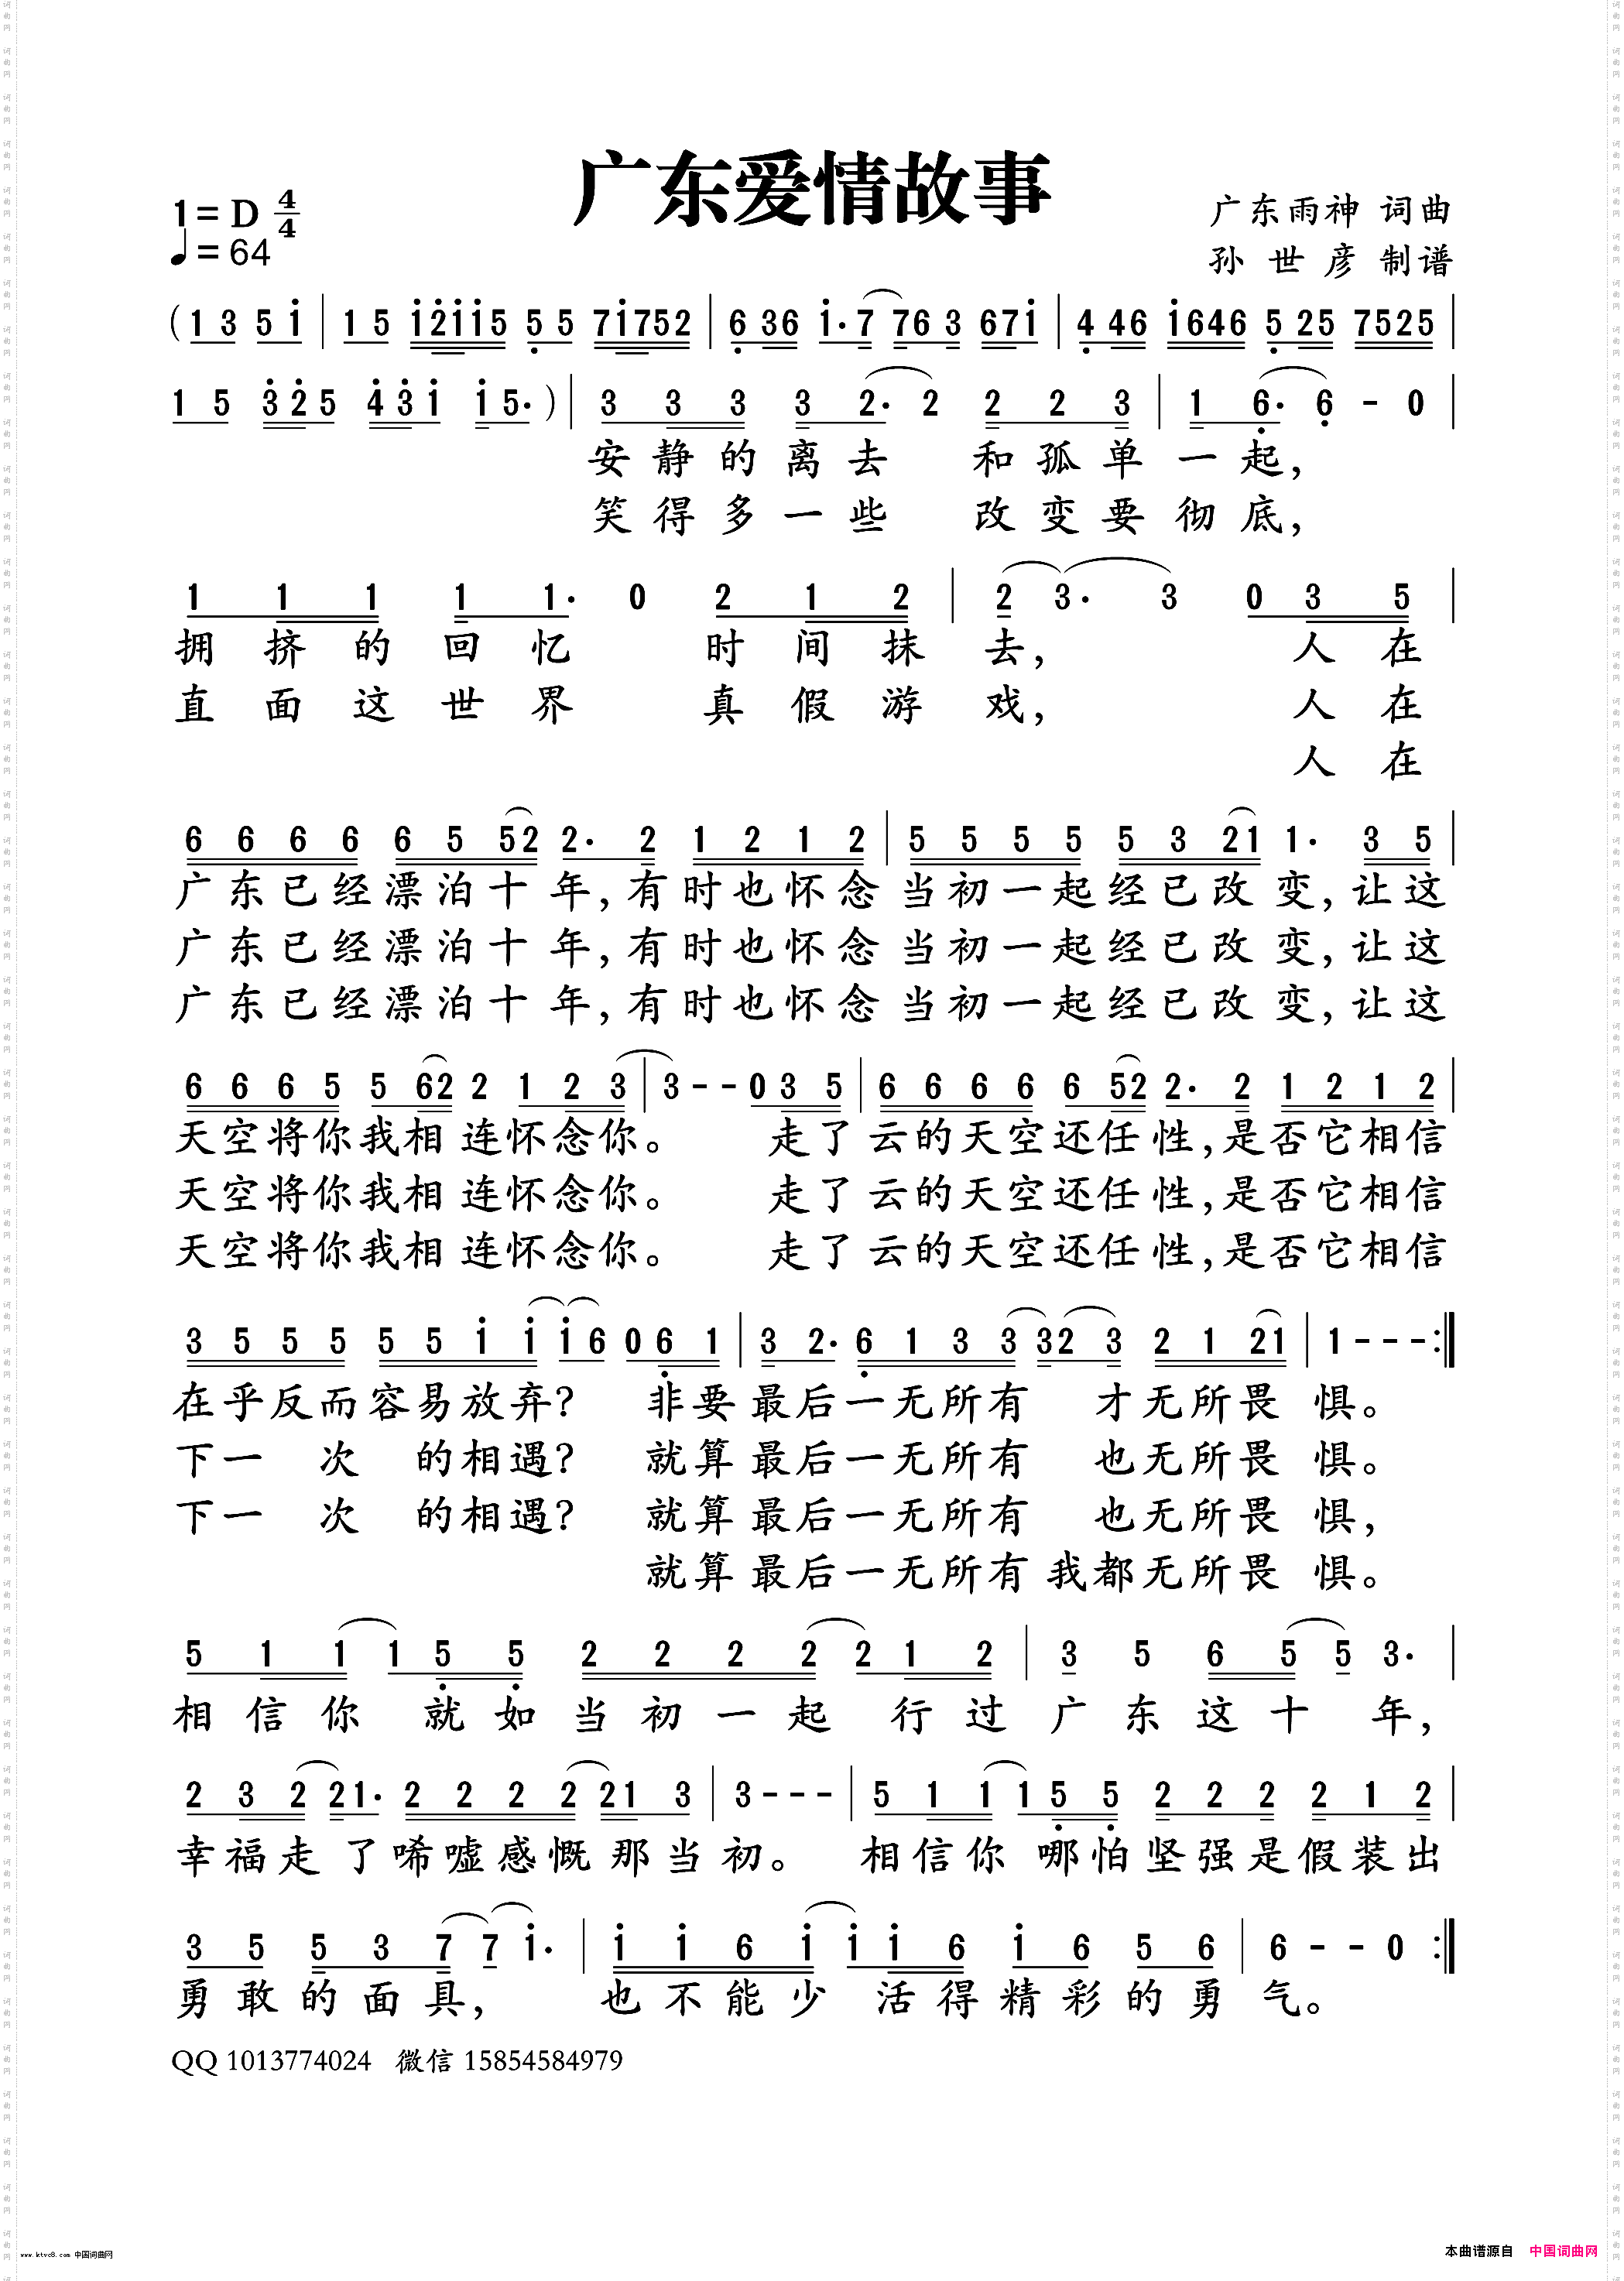 广东爱情故事
1=D 4/4
♩=64
广东雨神 词曲
孙世彦 制谱
(1 3 5 i | 1 5 i2ii5 5 5 7i752 | 6 36 i· 7 76 3 67i | 4 46 i646 5 25 7525 |
1 5 325 43i i5·) | 3 3 3 3 2· 2 2 2 3 | 1 6· 6 - 0 |
安静的离去 和孤单一起,
笑得多一些 改变要彻底,
1 1 1 1 1· 0 2 1 2 | 2 3· 3 0 3 5 |
拥挤的回忆 时间抹去, 人在
直面这世界 真假游戏, 人在
人在
6 6 6 6 6 5 52 2· 2 1 2 1 2 | 5 5 5 5 5 3 21 1· 3 5 |
广东已经漂泊十年,有时也怀念当初一起经已改变,让这
广东已经漂泊十年,有时也怀念当初一起经已改变,让这
广东已经漂泊十年,有时也怀念当初一起经已改变,让这
6 6 6 5 5 62 2 1 2 3 | 3 - - 0 3 5 | 6 6 6 6 6 52 2· 2 1 2 1 2 |
天空将你我相连怀念你。 走了云的天空还任性,是否它相信
天空将你我相连怀念你。 走了云的天空还任性,是否它相信
天空将你我相连怀念你。 走了云的天空还任性,是否它相信
3 5 5 5 5 5 i i i 6 0 6 1 | 3 2· 6 1 3 3 32 3 2 1 21 | 1 - - - :‖
在乎反而容易放弃? 非要最后一无所有 才无所畏惧。
下一次的相遇? 就算最后一无所有 也无所畏惧。
下一次的相遇? 就算最后一无所有 也无所畏惧,
就算最后一无所有我都无所畏惧。
5 1 1 1 5 5 2 2 2 2 2 1 2 | 3 5 6 5 5 3· |
相信你 就如当初一起 行过广东这十年,
2 3 2 21· 2 2 2 2 21 3 | 3 - - - | 5 1 1 1 5 5 2 2 2 2 1 2 |
幸福走了唏嘘感慨那当初。 相信你 哪怕坚强是假装出
3 5 5 3 7 7 i· | i i 6 i i i 6 i 6 5 6 | 6 - - 0 :‖
勇敢的面具, 也不能少 活得精彩的勇气。
QQ 1013774024 微信 15854584979
www.ktvc8.com 中国词曲网
本曲谱源自 中国词曲网